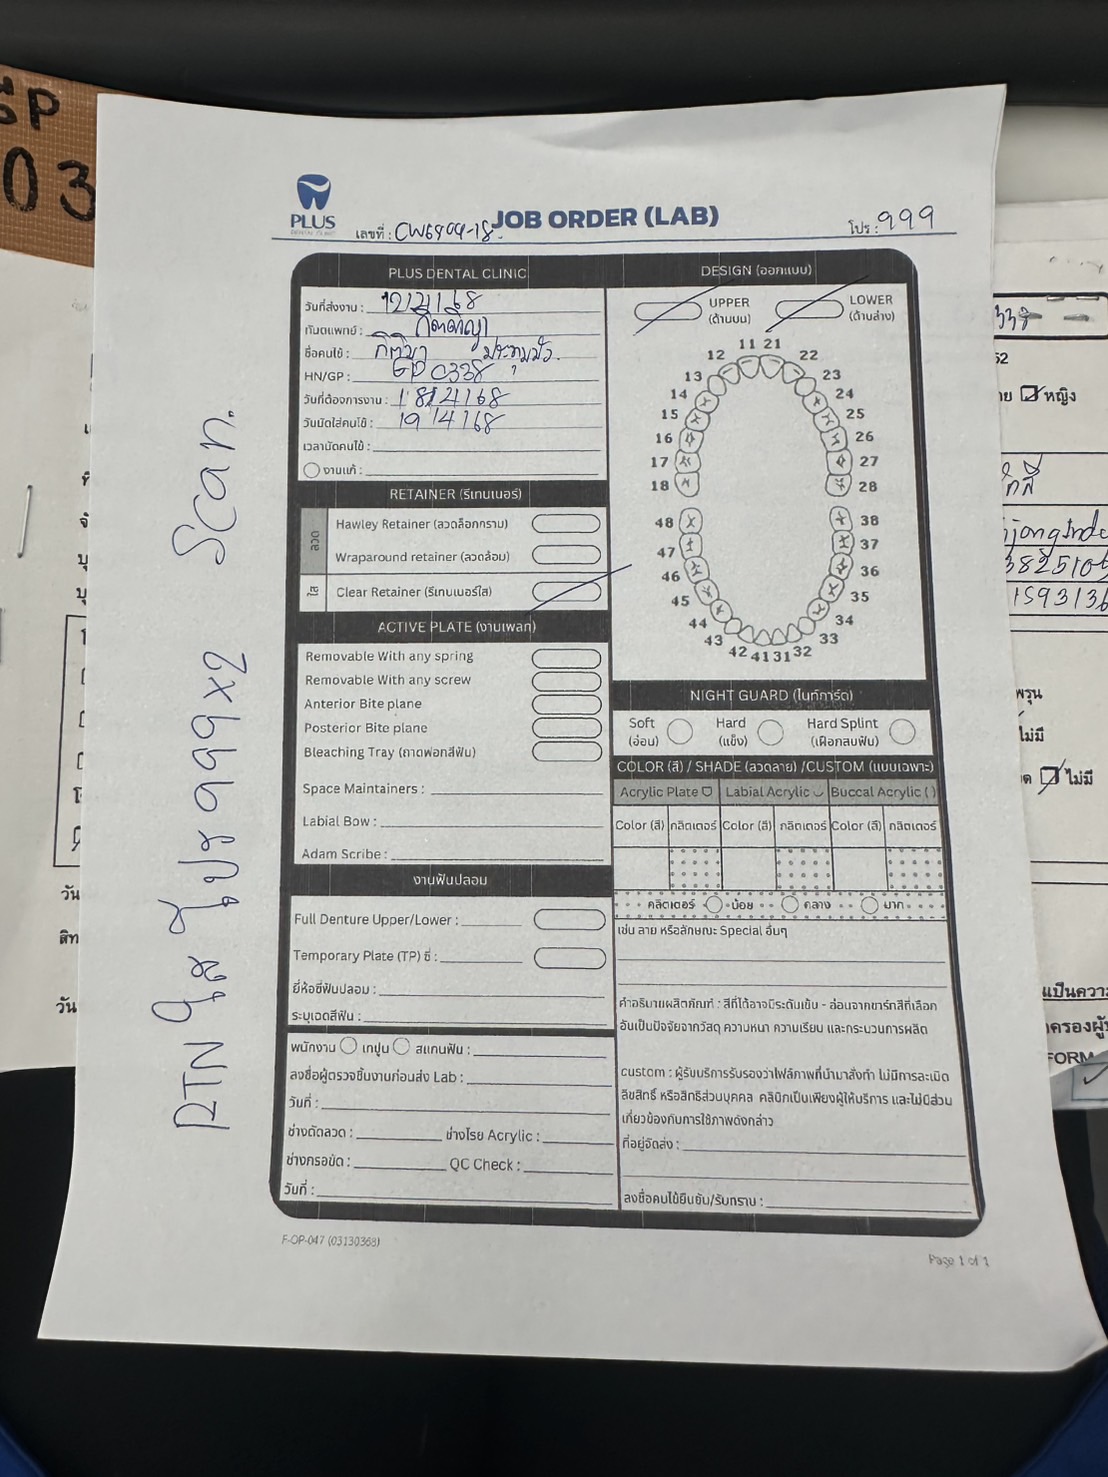 GP
03
PLUS
DENTAL CLINIC
เลขที่ : CW6404-18
JOB ORDER (LAB)
โปร : 999
PLUS DENTAL CLINIC
วันที่ส่งงาน : 12/4/68
ทันตแพทย์ :
ชื่อคนไข้ :
HN/GP : GP 0338
วันที่ต้องการงาน : 18/4/68
วันนัดใส่คนไข้ : 19/4/68
เวลานัดคนไข้ :
งานแก้ :
RETAINER (รีเทนเนอร์)
ลวด
Hawley Retainer (ลวดล็อกกราม)
Wraparound retainer (ลวดล้อม)
ใส
Clear Retainer (รีเทนเนอร์ใส)
ACTIVE PLATE (งานเพลท)
Removable With any spring
Removable With any screw
Anterior Bite plane
Posterior Bite plane
Bleaching Tray (ถาดฟอกสีฟัน)
Space Maintainers :
Labial Bow :
Adam Scribe :
งานฟันปลอม
Full Denture Upper/Lower :
Temporary Plate (TP) ซี่ :
ยี่ห้อซี่ฟันปลอม :
ระบุเฉดสีฟัน :
พนักงาน เทปูน สแกนฟัน :
ลงชื่อผู้ตรวจชิ้นงานก่อนส่ง Lab :
วันที่ :
ช่างดัดลวด : ช่างโรย Acrylic :
ช่างกรอขัด : QC Check :
วันที่ :
DESIGN (ออกแบบ)
UPPER
(ด้านบน)
LOWER
(ด้านล่าง)
11 21
12 22
13 23
14 24
15 25
16 26
17 27
18 28
48 38
47 37
46 36
45 35
44 34
43 33
42 41 31 32
NIGHT GUARD (ไนท์การ์ด)
Soft
(อ่อน)
Hard
(แข็ง)
Hard Splint
(เฝือกสบฟัน)
COLOR (สี) / SHADE (ลวดลาย) /CUSTOM (แบบเฉพาะ)
Acrylic Plate Labial Acrylic Buccal Acrylic ( )
Color (สี) กลิตเตอร์ Color (สี) กลิตเตอร์ Color (สี) กลิตเตอร์
กลิตเตอร์ น้อย กลาง มาก
เช่น ลาย หรือลักษณะ Special อื่นๆ
คำอธิบายผลิตภัณฑ์ : สีที่ได้อาจมีระดับเข้ม - อ่อนจากชาร์ทสีที่เลือก
อันเป็นปัจจัยจากวัสดุ ความหนา ความเรียบ และกระบวนการผลิต
custom : ผู้รับบริการรับรองว่าไฟล์ภาพที่นำมาสั่งทำ ไม่มีการละเมิด
ลิขสิทธิ์ หรือสิทธิส่วนบุคคล คลินิกเป็นเพียงผู้ให้บริการ และไม่มีส่วน
เกี่ยวข้องกับการใช้ภาพดังกล่าว
ที่อยู่จัดส่ง :
ลงชื่อคนไข้ยืนยัน/รับทราบ :
F-OP-047 (03130368)
Page 1 of 1
RTN ใส คู่ โปร 999 x2 Scan.
หญิง
ไม่มี
ไม่มี
FORM